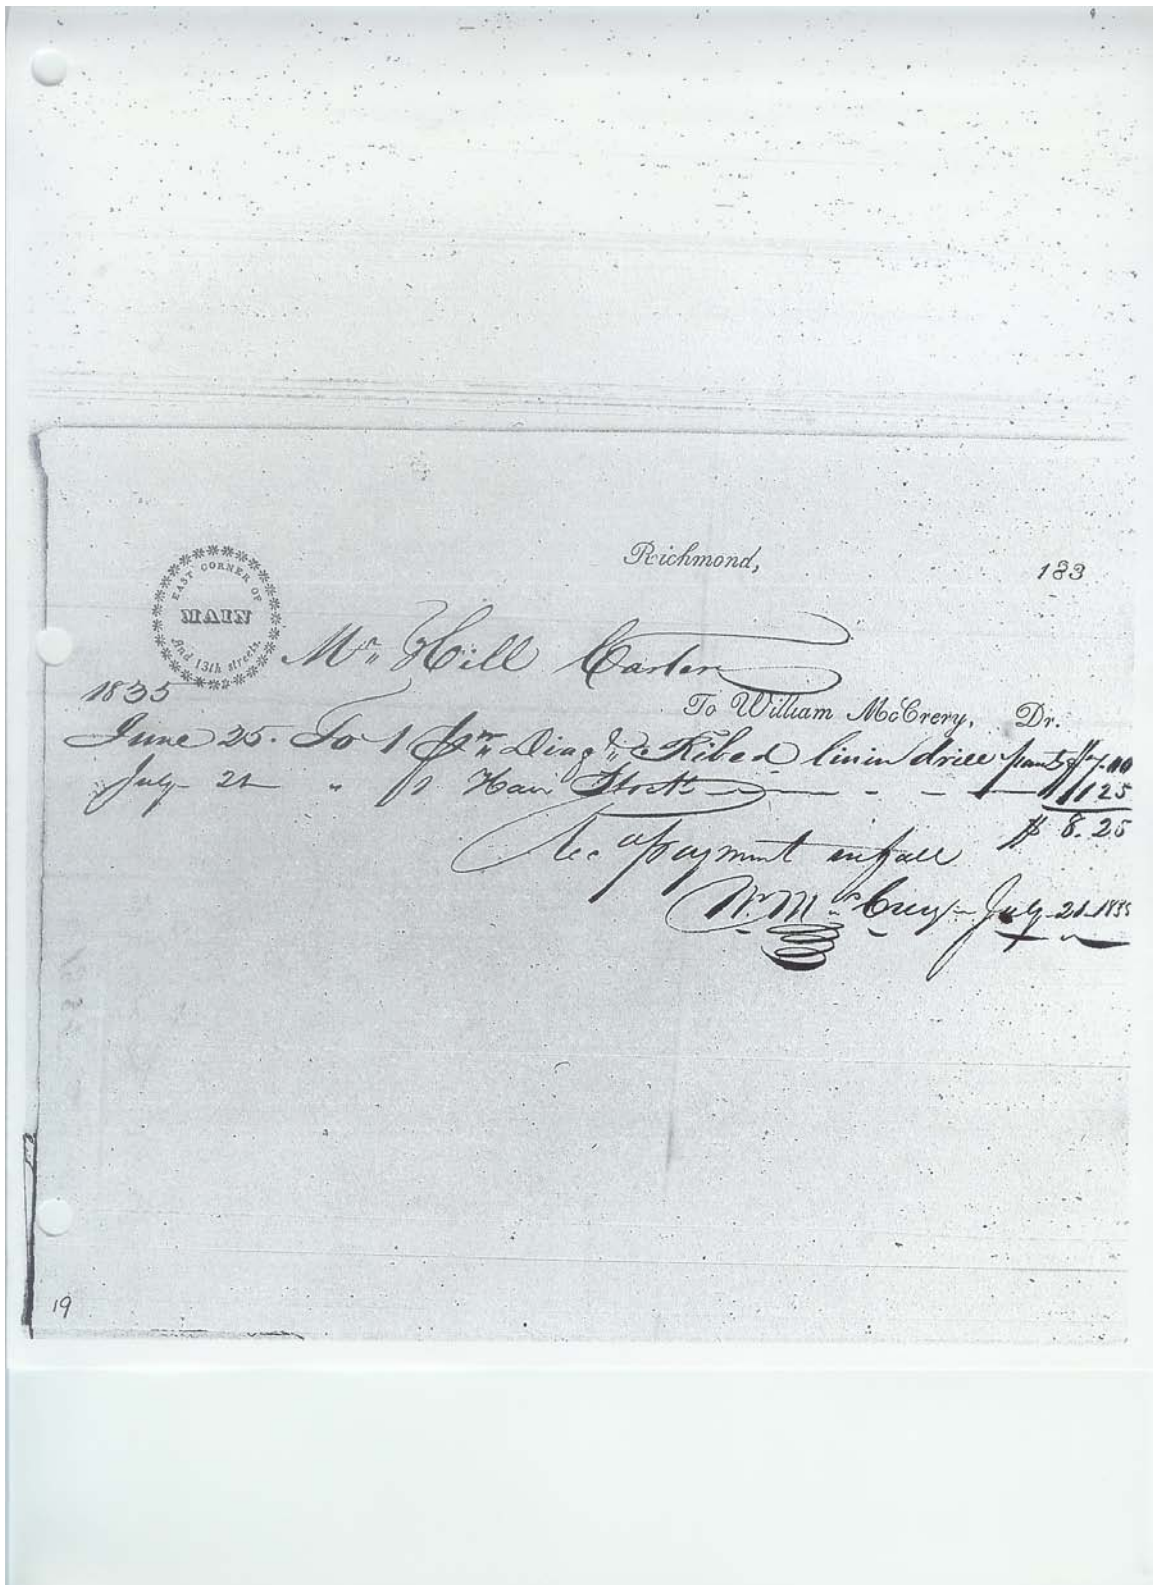 Richmond, 183
EAST CORNER OF
MAIN
And 13th streets.
Mr. Hill Carter
1835
To William McCrery, Dr.
June 25. To 1 pr Diagl Ribed linin drill pants $7.00
July 21 " 1 Hair Stock 1.25
$ 8.25
Rec payment in full
Wm McCrery July 21 1835
19